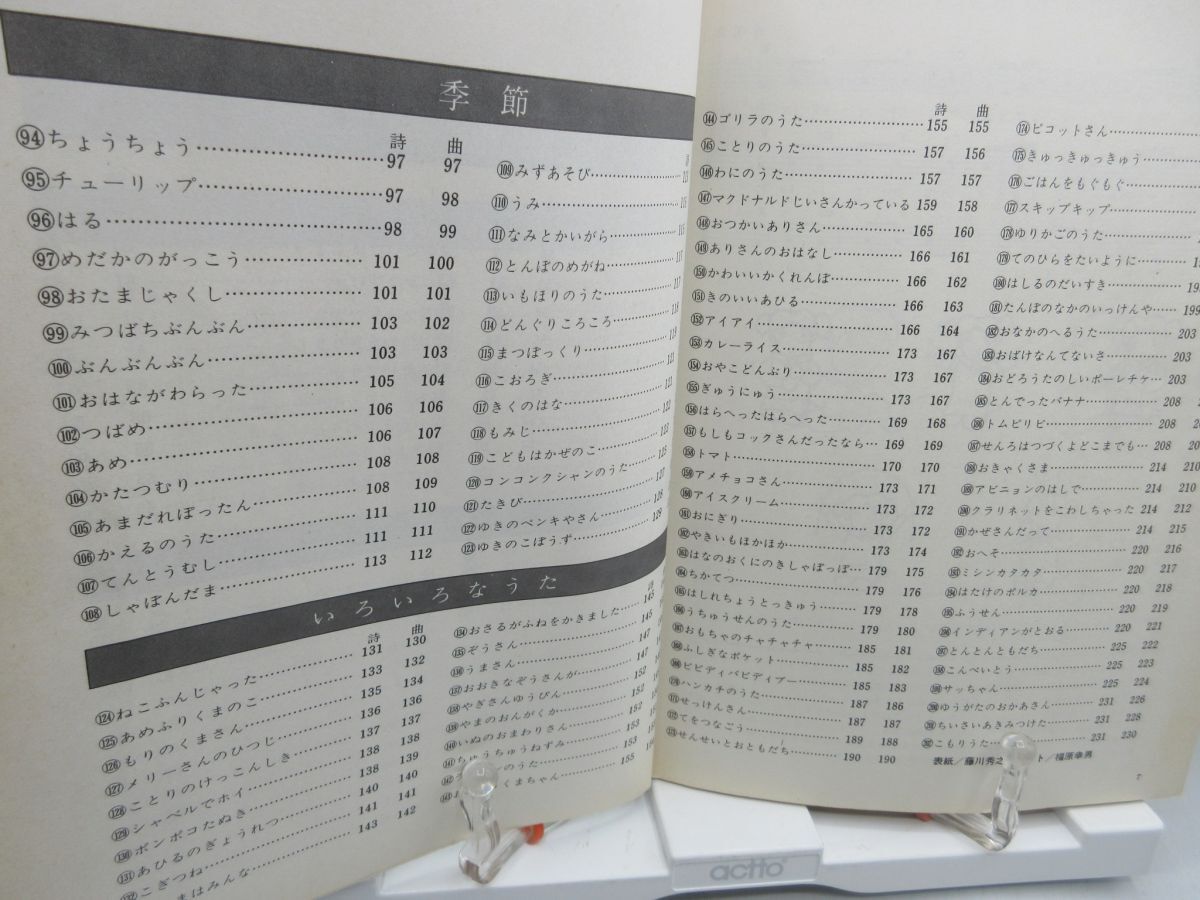 季節
詩 曲
94 ちょうちょう 97 97
95 チューリップ 97 98
96 はる 98 99
97 めだかのがっこう 101 100
98 おたまじゃくし 101 101
99 みつばちぶんぶん 103 102
100 ぶんぶんぶん 103 103
101 おはながわらった 105 104
102 つばめ 106 106
103 あめ 106 107
104 かたつむり 108 108
105 あまだれぽったん 108 109
106 かえるのうた 111 110
107 てんとうむし 111 111
108 しゃぼんだま 113 112
109 みずあそび
110 うみ
111 なみとかいがら
112 とんぼのめがね 117
113 いもほりのうた 117
114 どんぐりころころ
115 まつぼっくり 119
116 こおろぎ 121
117 きくのはな 121
118 もみじ 122
119 こどもはかぜのこ 123
120 コンコンクシャンのうた 125
121 たきび 127
122 ゆきのペンキやさん 128
123 ゆきのこぼうず 129
いろいろなうた
詩 曲
124 ねこふんじゃった 131 130
125 あめふりくまのこ 133 132
126 もりのくまさん 135 134
127 メリーさんのひつじ 136 136
128 ことりのけっこんしき 137 137
129 シャベルでホイ 138 138
130 ポンポコたぬき 138 139
131 あひるのぎょうれつ 140 140
132 こぎつね 141 141
まはみんな 143 142
134 おさるがふねをかきました 143
135 ぞうさん 145
136 うまさん 147
137 おおきなぞうさんが 147
138 やぎさんゆうびん 152
139 やまのおんがくか 152
140 いぬのおまわりさん 152
141 ちゅうちゅうねずみ 153
142 のうた 153
143 くまちゃん 155
詩 曲
144 ゴリラのうた 155 155
145 ことりのうた 157 156
146 わにのうた 157 157
147 マクドナルドじいさんかっている 159 158
148 おつかいありさん 165 160
149 ありさんのおはなし 166 161
150 かわいいかくれんぼ 166 162
151 きのいいあひる 166 163
152 アイアイ 166 164
153 カレーライス 173 167
154 おやこどんぶり 173 167
155 ぎゅうにゅう 173 167
156 はらへったはらへった 169 168
157 もしもコックさんだったなら 169 169
158 トマト 170 170
159 アメチョコさん 173 171
160 アイスクリーム 173 172
161 おにぎり 173 172
162 やきいもほかほか 173 174
163 はなのおくにのきしゃぽっぽ 179 175
164 ちかてつ 179 176
165 はしれちょうとっきゅう 179 178
166 うちゅうせんのうた 179 180
167 おもちゃのチャチャチャ 185 181
168 ふしぎなポケット 185 182
169 ビビディバビディブー 185 183
170 ハンカチのうた 187 186
171 せっけんさん 187 187
172 てをつなごう 189 188
173 せんせいとおともだち 190 190
174 ピコットさん
175 きゅっきゅっきゅう
176 ごはんをもぐもぐ
177 スキップキップ
178 ゆりかごのうた
179 てのひらをたいように
180 はしるのだいすき
181 たんぼのなかのいっけんや 199
182 おなかのへるうた 203
183 おばけなんてないさ 203
184 おどろうたのしいポーレチケ 203
185 とんでったバナナ 208
186 トムピリビ 208
187 せんろはつづくよどこまでも 208
188 おきゃくさま 214 210
189 アビニョンのはしで 214 210
190 クラリネットをこわしちゃった 214 212
191 かぜさんだって 214 215
192 おへそ 220 216
193 ミシンカタカタ 220 217
194 はたけのポルカ 220 218
195 ふうせん 220 219
196 インディアンがとおる 220 221
197 とんとんともだち 225 222
198 こんぺいとう 225 223
199 サッちゃん 225 224
200 ゆうがたのおかあさん 231 226
201 ちいさいあきみつけた 231 228
202 こもりうた 231 230
表紙／藤川秀之 ト／福原幸男
7
actto